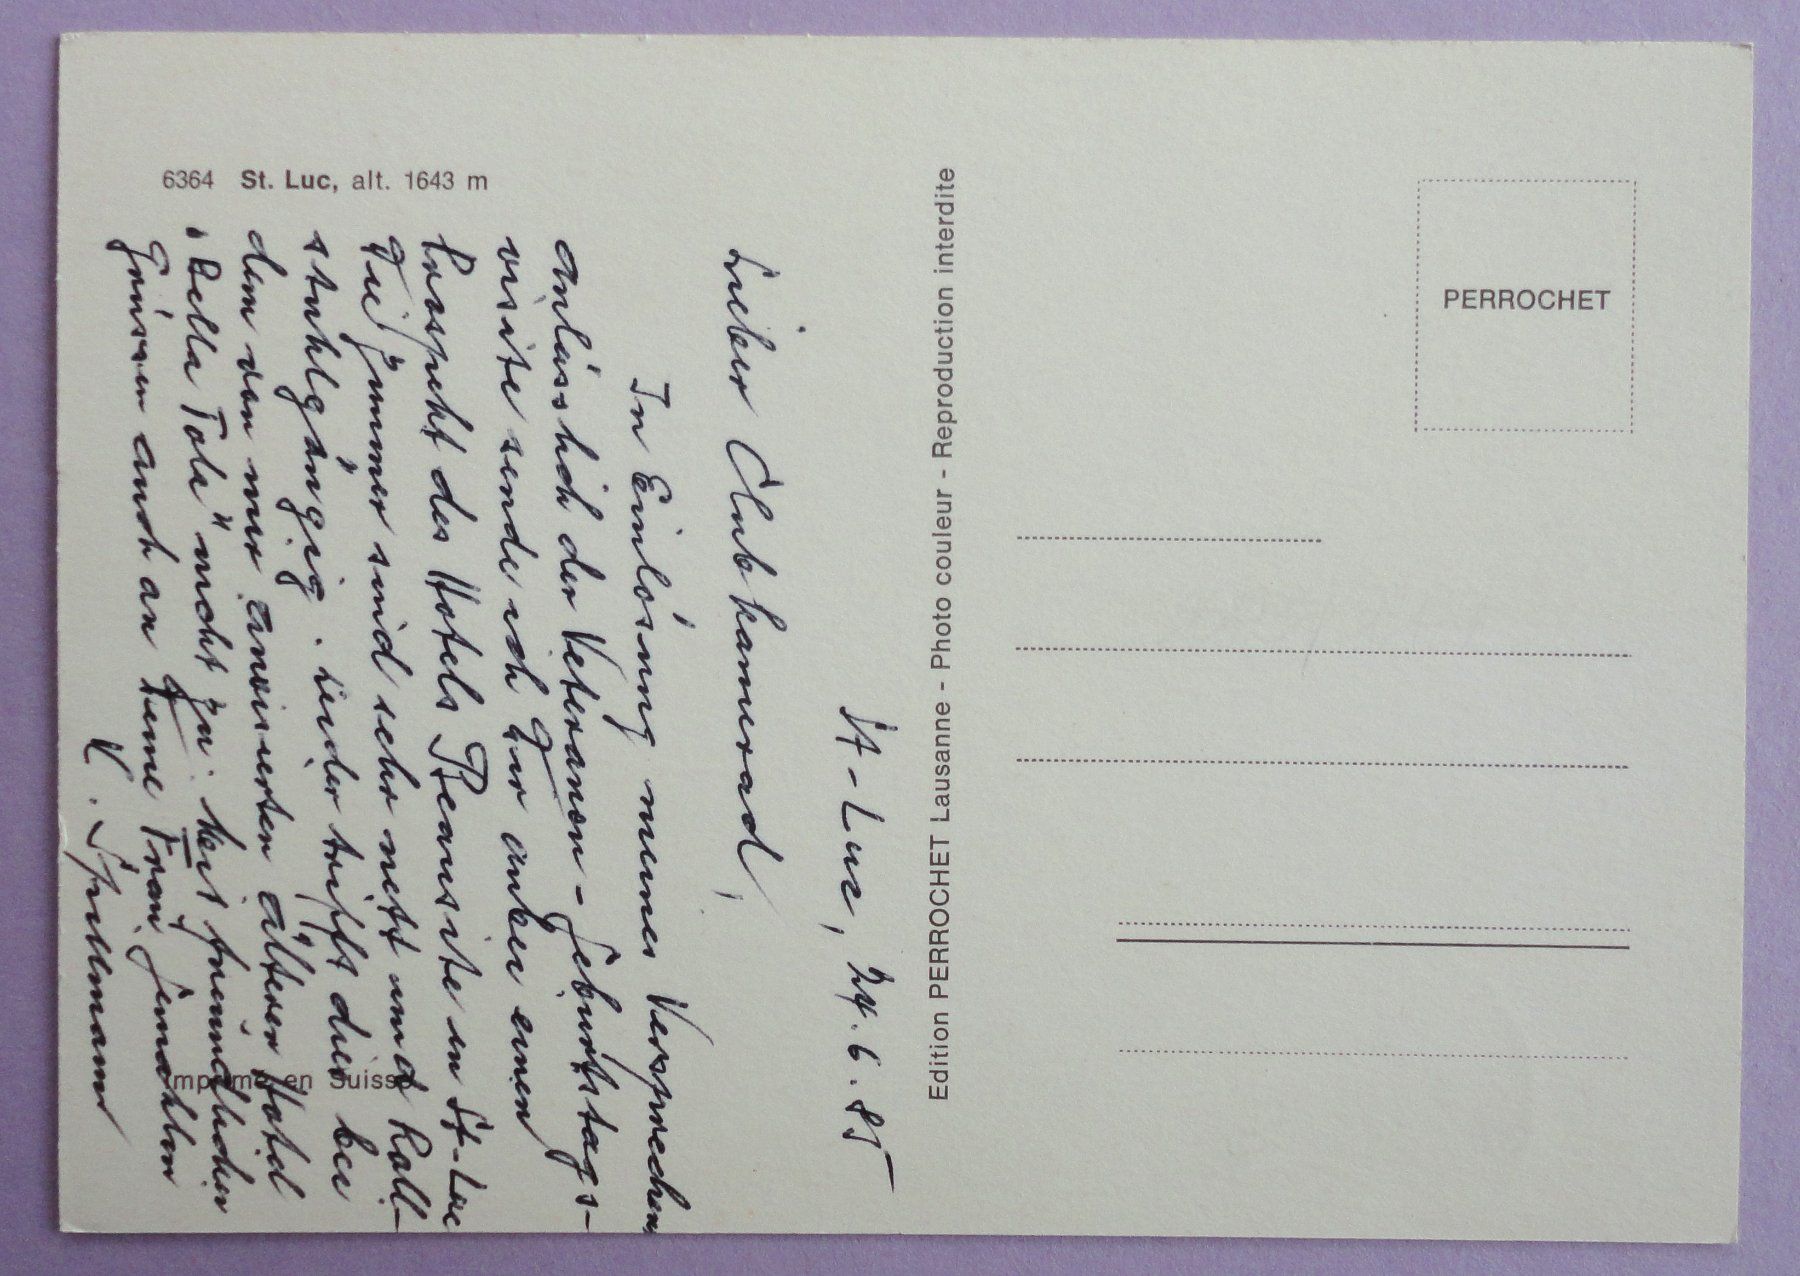 6364 St. Luc, alt. 1643 m
St-Luc, 24.6.85
Lieber Clubkamerad,
In Einlösung meines Versprechens
anlässlich der Veteranen-Geburtstags-
visite sende ich Dir anbei einen
Prospekt des Hotels Beausite in St-Luc
Die Zimmer sind sehr nett und roll-
stuhlgängig. Leider trifft dies bei
dem von mir anvisierten älteren Hotel
"Bella Tola" nicht zu. Mit freundlichen
Grüssen auch an Deine Frau, Gemahlin
V. Spillmann
Imprimé en Suisse
Edition PERROCHET Lausanne - Photo couleur - Reproduction interdite
PERROCHET